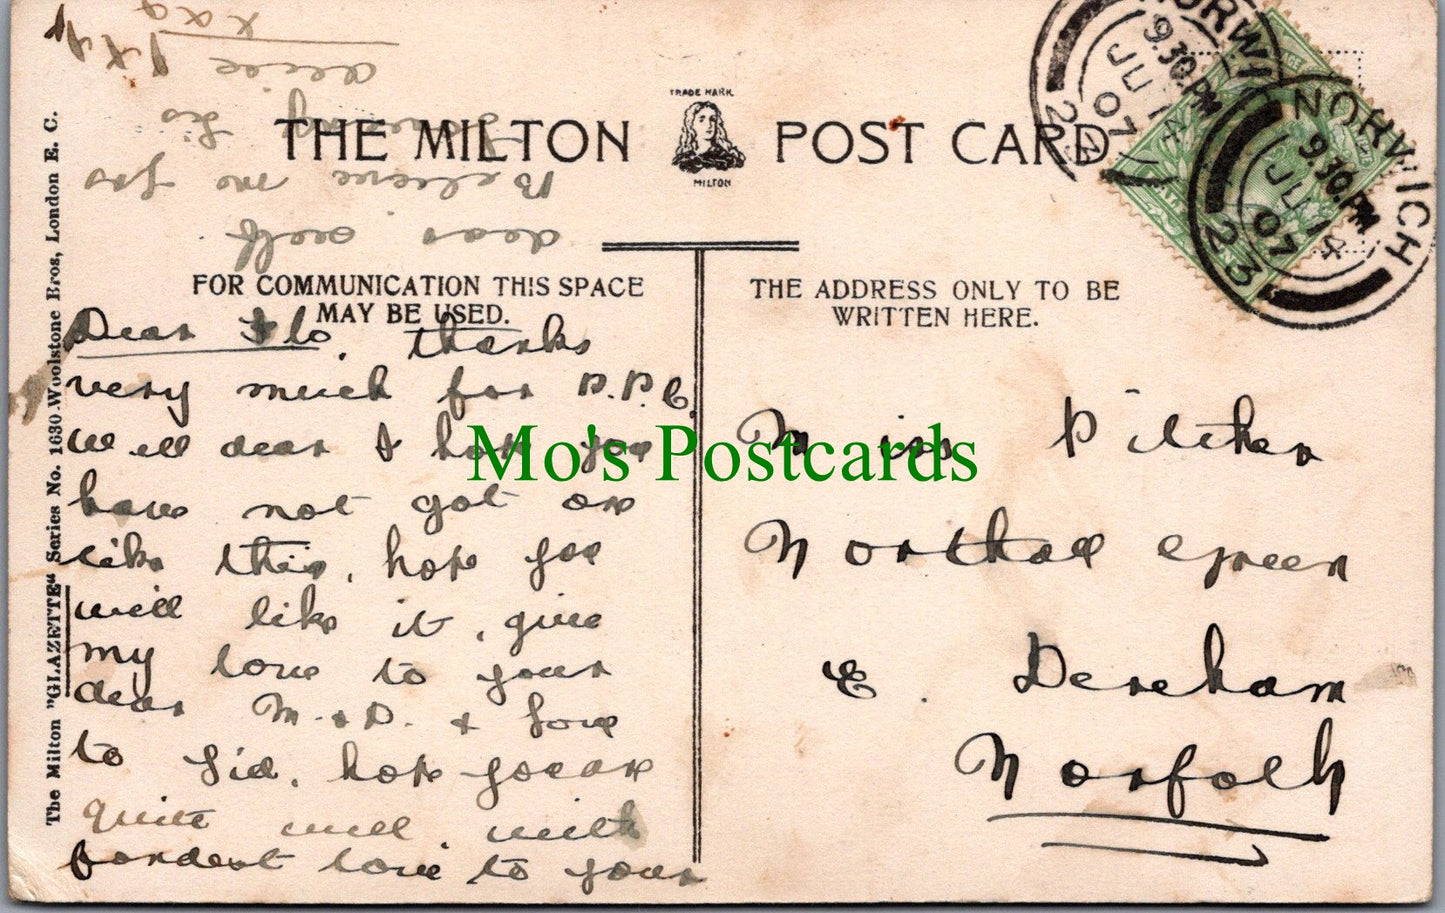 THE MILTON POST CARD
TRADE MARK
MILTON
NORWICH
9.30.PM
JU 14
07
NORWICH
9.30.PM
JU 14
07
23
FOR COMMUNICATION THIS SPACE
MAY BE USED.
THE ADDRESS ONLY TO BE
WRITTEN HERE.
The Milton "GLAZETTE" Series No. 1630 Woolstone Bros, London E. C.
Dear Flo, thanks
very much for P.P.C.
Well dear I hope you
have not got one
like this, hope you
will like it, give
my love to your
dear M. & D. & love
to Sid, hope you are
quite well with
fondest love to your
dear self
Believe me yos
loving Sis
Alice
Miss Pilcher
Northall Green
E. Dereham
Norfolk
Mo's Postcards